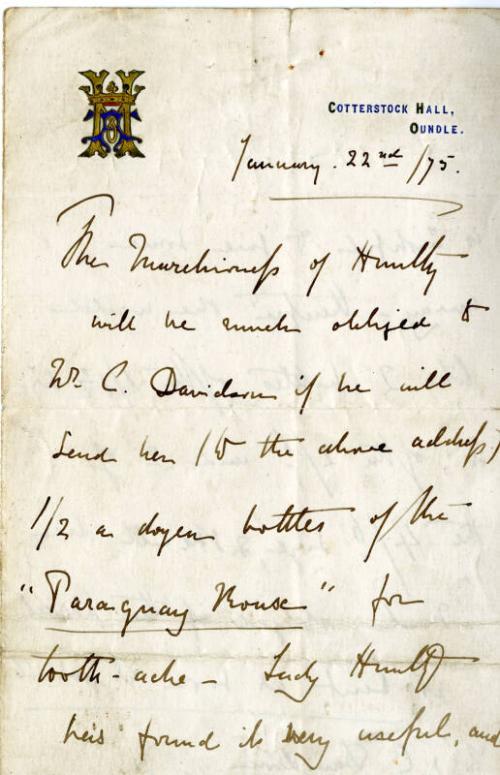 COTTERSTOCK HALL,
OUNDLE.
January. 22nd /75.
The Marchioness of Huntly
will be much obliged to
Mr C. Davidson if he will
send her (to the above address)
1/2 a dozen bottles of the
"Paraguay Rouse" for
tooth-ache - Lady Huntly
has found it very useful, and